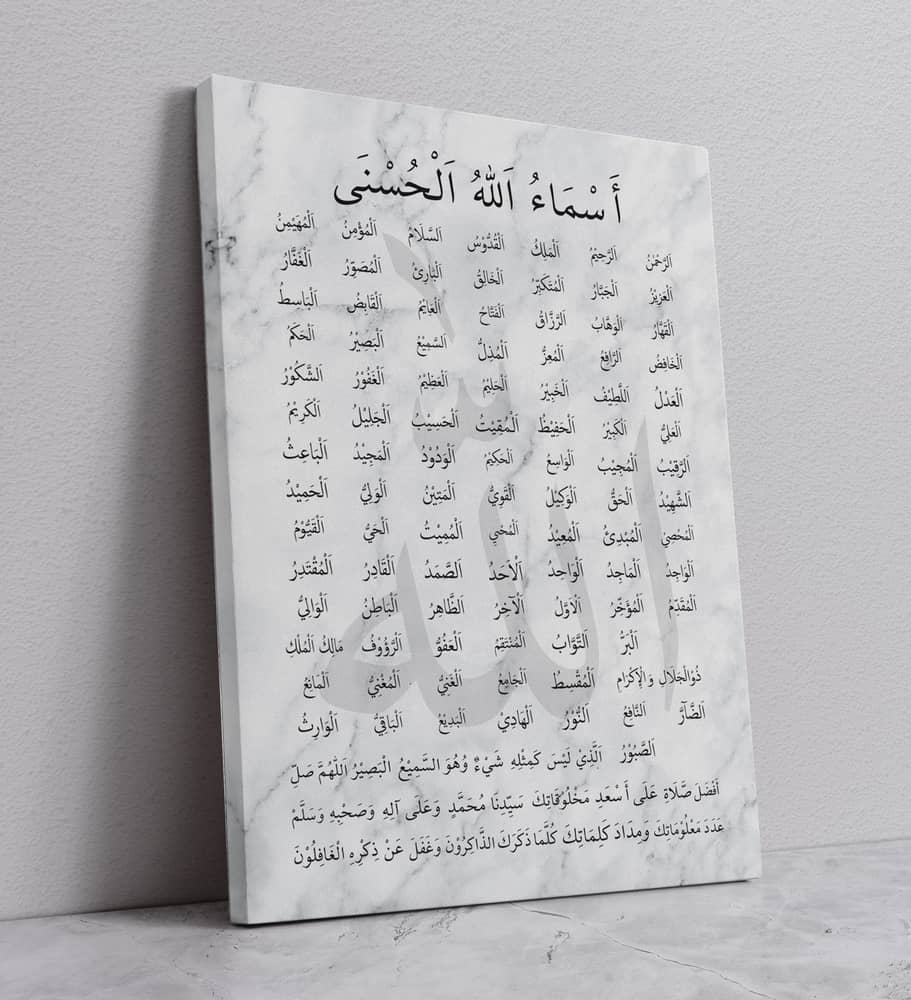 أَسْمَاءُ اَللهُ اَلْحُسْنَى
اَلرَّحْمٰنُ اَلرَّحِيْمُ اَلْمَلِكُ اَلْقُدُّوْسُ اَلسَّلَامُ اَلْمُؤْمِنُ اَلْمُهَيْمِنُ
اَلْعَزِيْزُ اَلْجَبَّارُ اَلْمُتَكَبِّرُ اَلْخَالِقُ اَلْبَارِئُ اَلْمُصَوِّرُ اَلْغَفَّارُ
اَلْقَهَّارُ اَلْوَهَّابُ اَلرَّزَّاقُ اَلْفَتَّاحُ اَلْعَلِيْمُ اَلْقَابِضُ اَلْبَاسِطُ
اَلْخَافِضُ اَلرَّافِعُ اَلْمُعِزُّ اَلْمُذِلُّ اَلسَّمِيْعُ اَلْبَصِيْرُ اَلْحَكَمُ
اَلْعَدْلُ اَللَّطِيْفُ اَلْخَبِيْرُ اَلْحَلِيْمُ اَلْعَظِيْمُ اَلْغَفُوْرُ اَلشَّكُوْرُ
اَلْعَلِيُّ اَلْكَبِيْرُ اَلْحَفِيْظُ اَلْمُقِيْتُ اَلْحَسِيْبُ اَلْجَلِيْلُ اَلْكَرِيْمُ
اَلرَّقِيْبُ اَلْمُجِيْبُ اَلْوَاسِعُ اَلْحَكِيْمُ اَلْوَدُوْدُ اَلْمَجِيْدُ اَلْبَاعِثُ
اَلشَّهِيْدُ اَلْحَقُّ اَلْوَكِيْلُ اَلْقَوِيُّ اَلْمَتِيْنُ اَلْوَلِيُّ اَلْحَمِيْدُ
اَلْمُحْصِيْ اَلْمُبْدِئُ اَلْمُعِيْدُ اَلْمُحْيِي اَلْمُمِيْتُ اَلْحَيُّ اَلْقَيُّوْمُ
اَلْوَاجِدُ اَلْمَاجِدُ اَلْوَاحِدُ اَلْأَحَدُ اَلصَّمَدُ اَلْقَادِرُ اَلْمُقْتَدِرُ
اَلْمُقَدِّمُ اَلْمُؤَخِّرُ اَلْأَوَّلُ اَلْآخِرُ اَلظَّاهِرُ اَلْبَاطِنُ اَلْوَالِيُّ
اَلْبَرُّ اَلتَّوَّابُ اَلْمُنْتَقِمُ اَلْعَفُوُّ اَلرَّؤُوْفُ مَالِكَ الْمُلْكِ
ذُوْالْجَلَالِ وَالْإِكْرَامِ اَلْمُقْسِطُ اَلْجَامِعُ اَلْغَنِيُّ اَلْمُغْنِيُّ اَلْمَانِعُ
اَلضَّآرُّ اَلنَّافِعُ اَلنُّوْرُ اَلْهَادِيْ اَلْبَدِيْعُ اَلْبَاقِيُّ اَلْوَارِثُ
اَلصَّبُوْرُ اَلَّذِيْ لَيْسَ كَمِثْلِهِ شَيْءٌ وَهُوَ السَّمِيْعُ الْبَصِيْرُ اَللّٰهُمَّ صَلِّ
أَفْضَلَ صَلَاةٍ عَلَى أَسْعَدِ مَخْلُوْقَاتِكَ سَيِّدِنَا مُحَمَّدٍ وَعَلَى آلِهِ وَصَحْبِهِ وَسَلَّمْ
عَدَدَ مَعْلُوْمَاتِكَ وَمِدَادَ كَلِمَاتِكَ كُلَّمَا ذَكَرَكَ الذَّاكِرُوْنَ وَغَفَلَ عَنْ ذِكْرِهِ الْغَافِلُوْنَ
الله